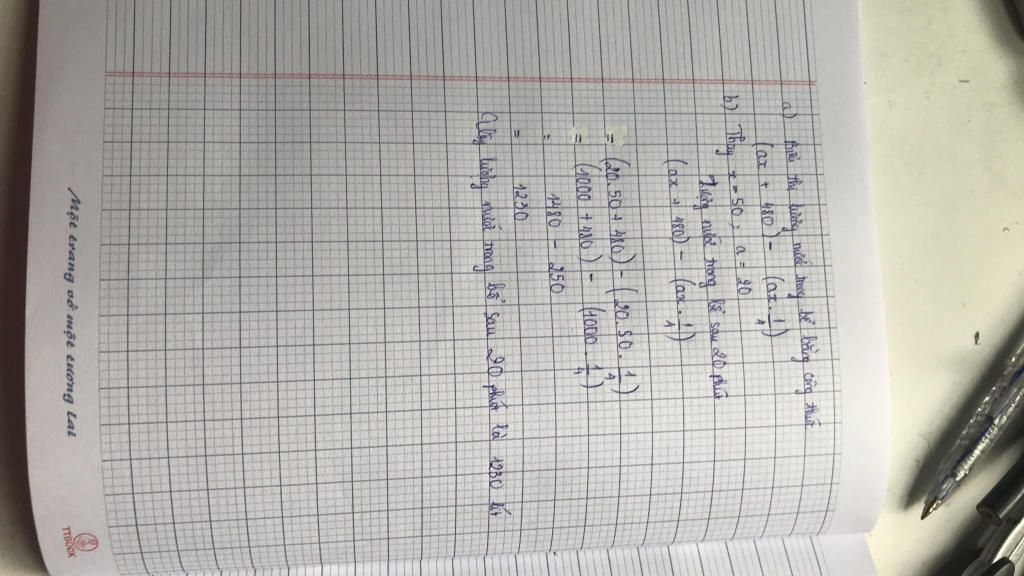 a) Biểu thị lượng nước trong bể bằng công thức
(ax + 480) - (ax . 1/4)
b) Thay x = 50 ; a = 20
Lượng nước trong bể sau 20 phút
(ax + 480) - (ax . 1/4)
= (20.50 + 480) - (20.50 . 1/4)
= (1000 + 480) - (1000 . 1/4)
= 1480 - 250
= 1230
Vậy lượng nước trong bể sau 20 phút là 1230 lít
Một trang vở một tương lai
TTBOOK